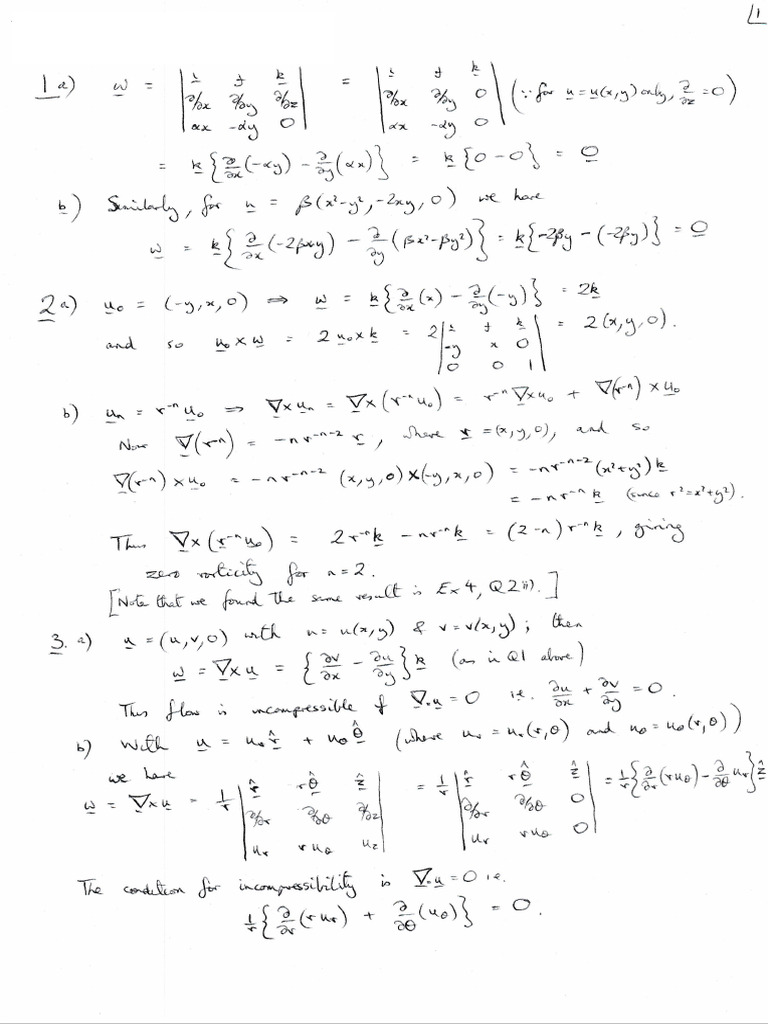 1
1 a) ω = | i j k ; ∂/∂x ∂/∂y ∂/∂z ; αx -αy 0 | = | i j k ; ∂/∂x ∂/∂y 0 ; αx -αy 0 | (∵ for u = u(x,y) only, ∂/∂z = 0)
= k{∂/∂x(-αy) - ∂/∂y(αx)} = k{0-0} = 0
b) Similarly, for u = β(x²-y², -2xy, 0) we have
ω = k{∂/∂x(-2βxy) - ∂/∂y(βx²-βy²)} = k{-2βy - (-2βy)} = 0
2 a) u₀ = (-y, x, 0) ⇒ ω = k{∂/∂x(x) - ∂/∂y(-y)} = 2k
and so u₀ x ω = 2 u₀ x k = 2 | i j k ; -y x 0 ; 0 0 1 | = 2(x, y, 0).
b) uₙ = r⁻ⁿ u₀ ⇒ ∇ x uₙ = ∇ x (r⁻ⁿ u₀) = r⁻ⁿ ∇ x u₀ + ∇(r⁻ⁿ) x u₀
Now ∇(r⁻ⁿ) = -n r⁻ⁿ⁻² r, where r = (x, y, 0), and so
∇(r⁻ⁿ) x u₀ = -n r⁻ⁿ⁻² (x, y, 0) X (-y, x, 0) = -n r⁻ⁿ⁻² (x²+y²) k
= -n r⁻ⁿ k (since r² = x²+y²).
Thus ∇ x (r⁻ⁿ u₀) = 2 r⁻ⁿ k - n r⁻ⁿ k = (2-n) r⁻ⁿ k, giving
zero vorticity for n = 2.
[Note that we found the same result is Ex 4, Q2 ii).]
3. a) u = (u, v, 0) with u = u(x,y) & v = v(x,y); then
ω = ∇ x u = {∂v/∂x - ∂u/∂y} k (as in Q1 above)
This flow is incompressible if ∇.u = 0 i.e. ∂u/∂x + ∂v/∂y = 0.
b) With u = uᵣ r̂ + u_θ θ̂ (where uᵣ = uᵣ(r,θ) and u_θ = u_θ(r,θ))
we have
ω = ∇ x u = 1/r | r̂ rθ̂ ẑ ; ∂/∂r ∂/∂θ ∂/∂z ; uᵣ r u_θ u_z | = 1/r | r̂ rθ̂ ẑ ; ∂/∂r ∂/∂θ 0 ; uᵣ r u_θ 0 | = 1/r {∂/∂r(r u_θ) - ∂/∂θ uᵣ} ẑ
The condition for incompressibility is ∇.u = 0 i.e.
1/r {∂/∂r(r uᵣ) + ∂/∂θ(u_θ)} = 0.